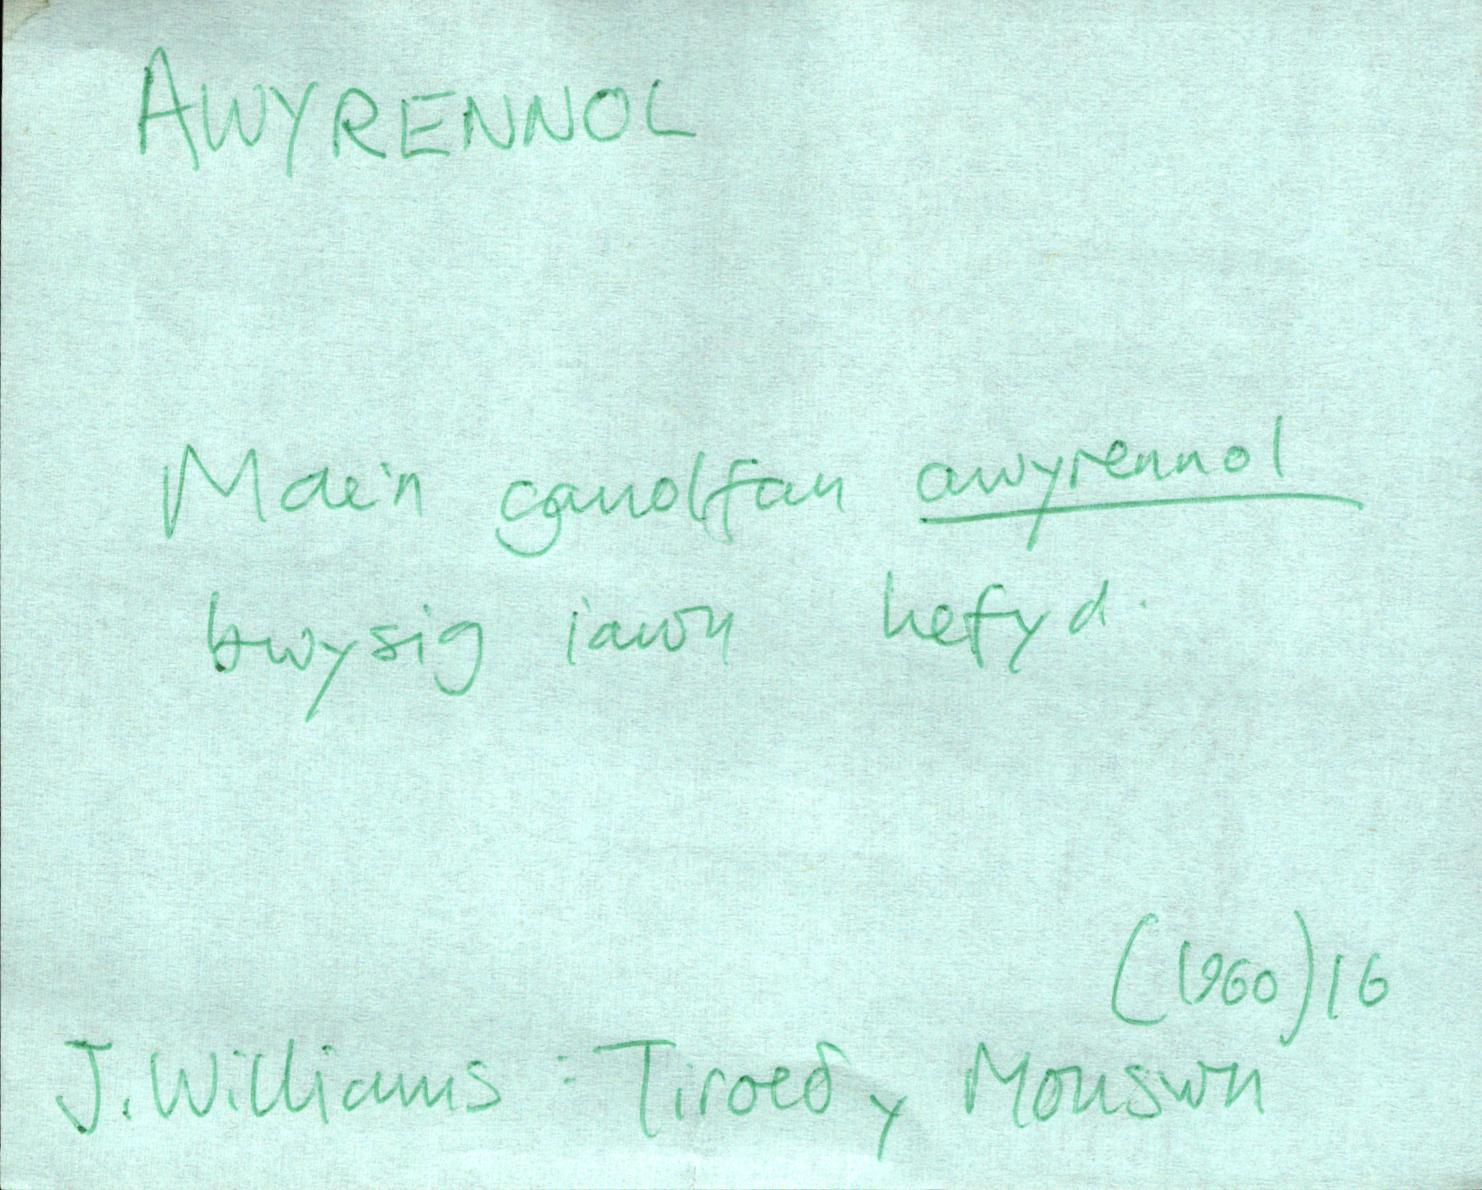 AWYRENNOL
Mae'n ganolfan awyrennol
bwysig iawn hefyd.
(1960) 16
J. Williams : Tiroeð y Monsŵn